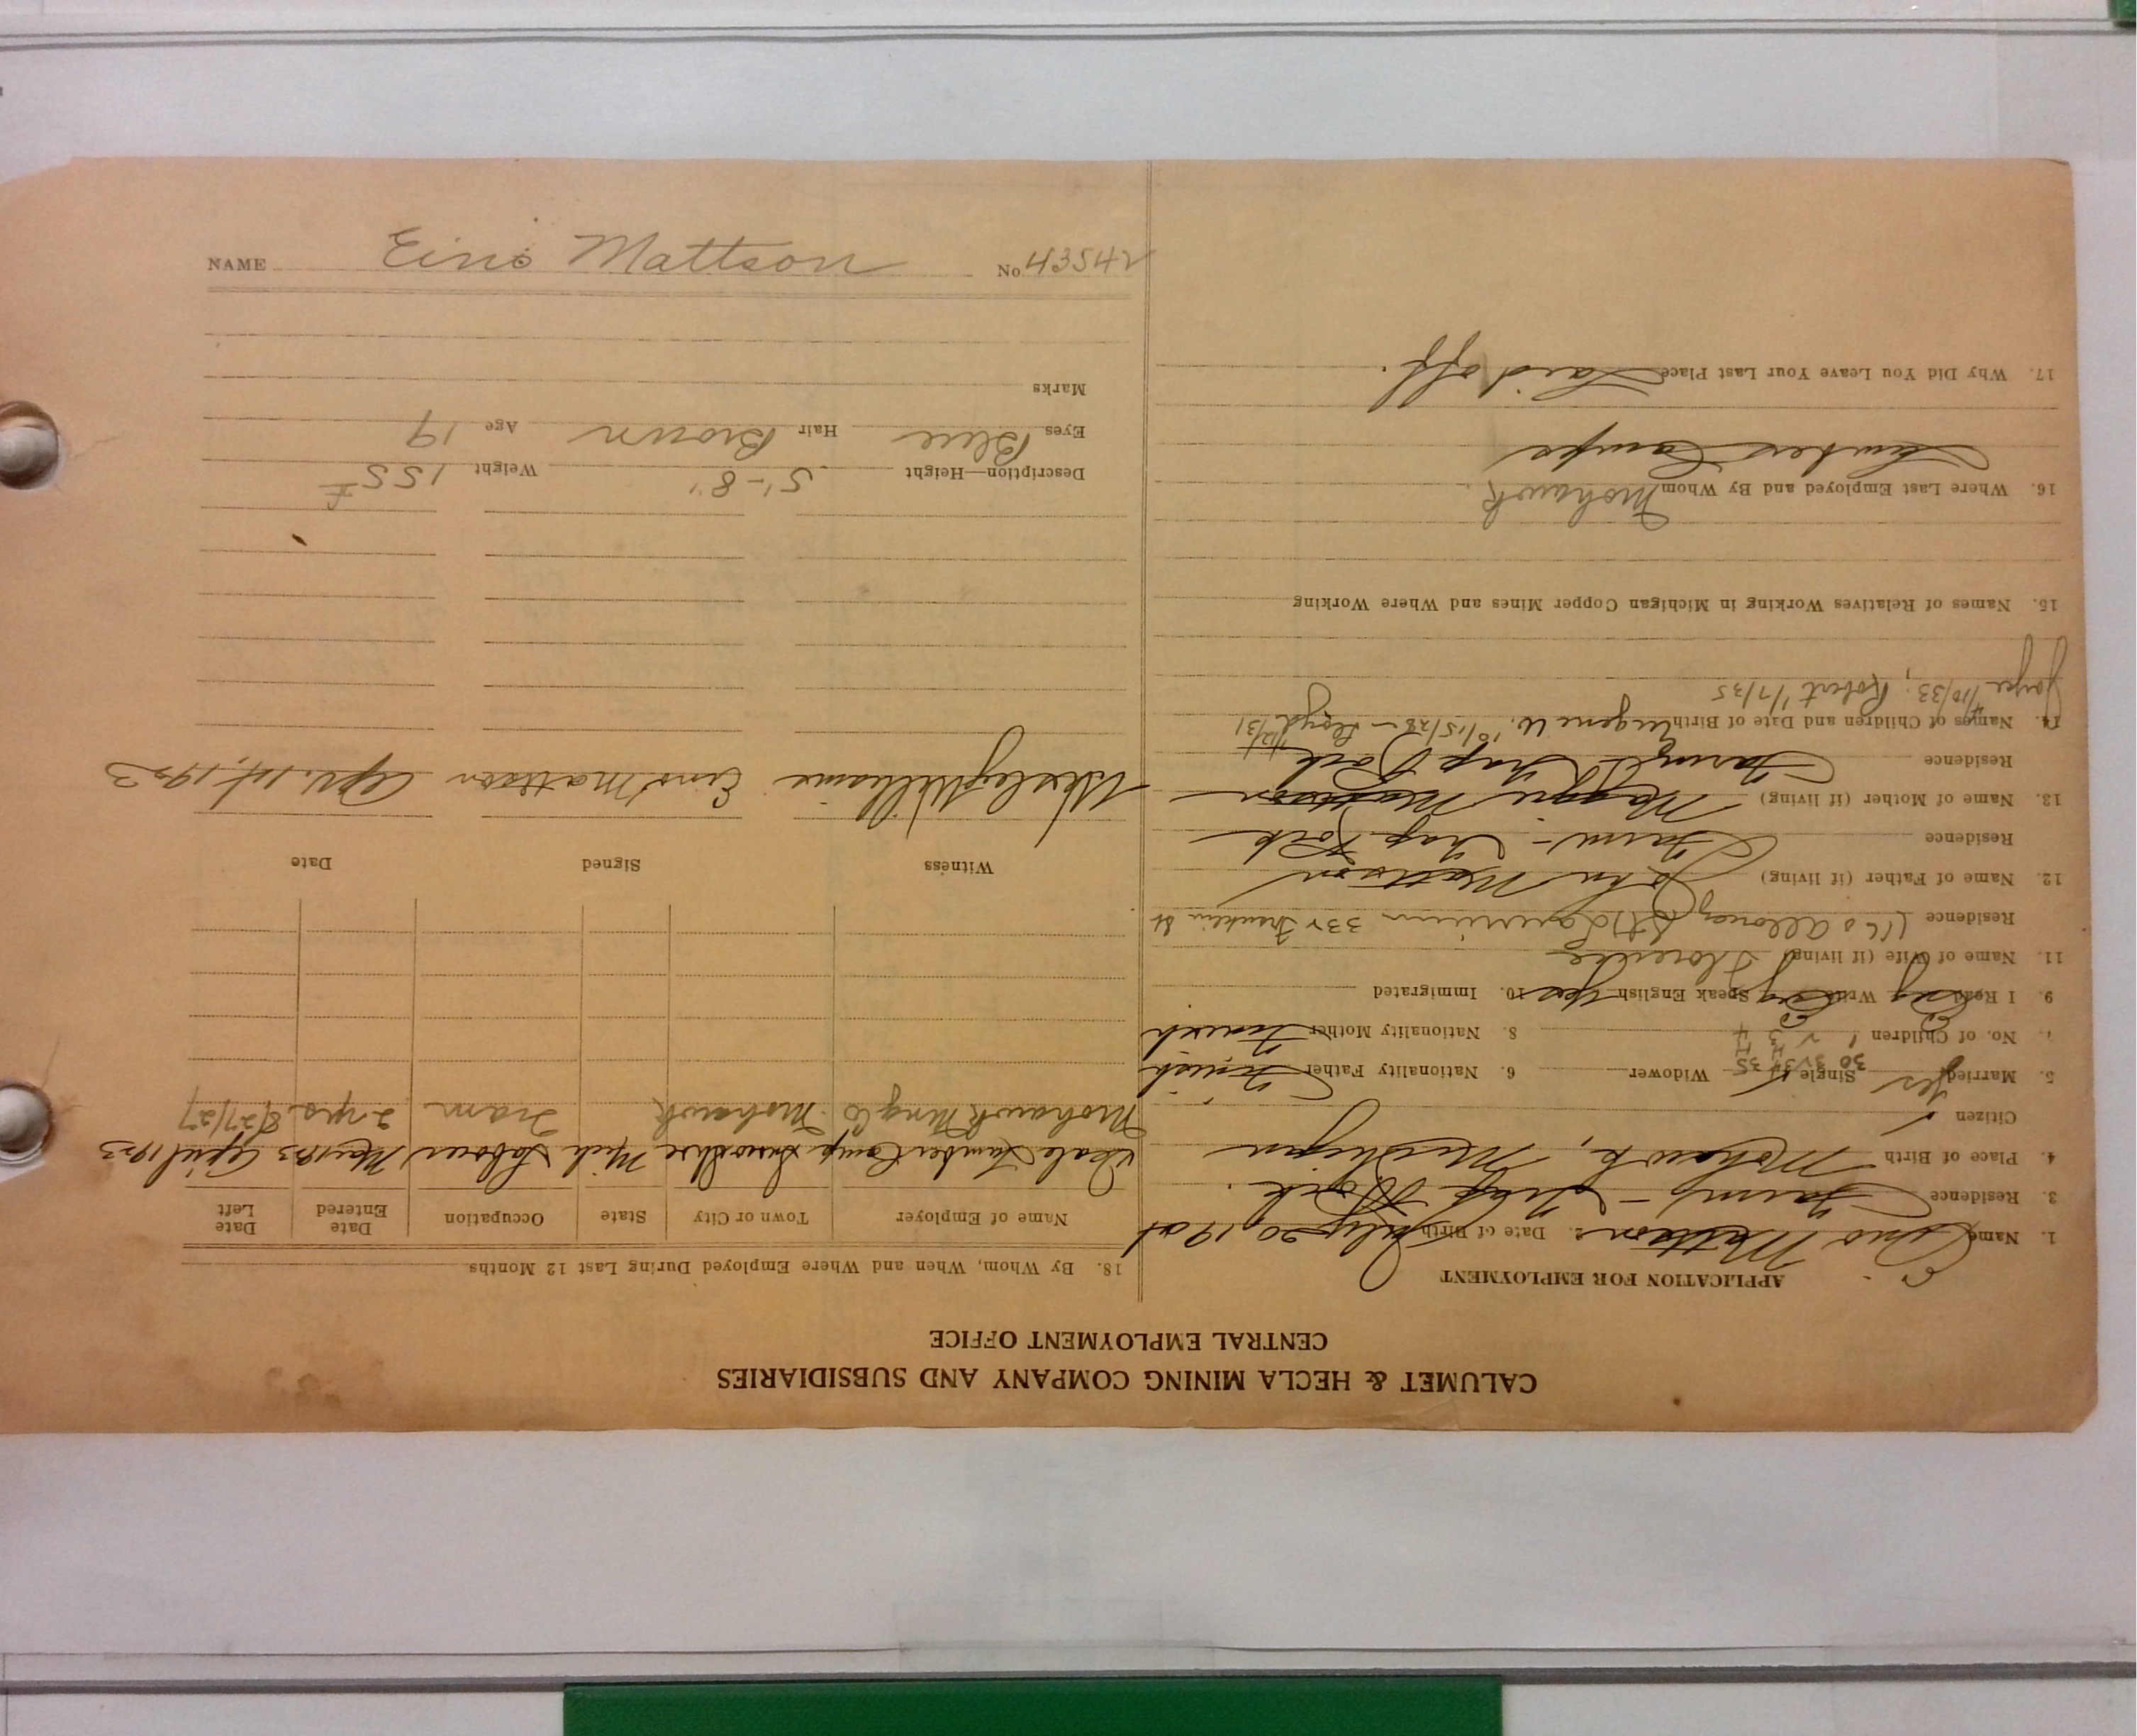 CALUMET & HECLA MINING COMPANY AND SUBSIDIARIES
CENTRAL EMPLOYMENT OFFICE
APPLICATION FOR EMPLOYMENT
1. Name Eino Mattson 2. Date of Birth July 20, 1904
3. Residence Farm - Trap Rock.
4. Place of Birth Mohawk, Michigan
Citizen
5. Married Yes Single Widower 6. Nationality Father Finnish
30 32 34 35
7. No. of Children 1 2 3 4 8. Nationality Mother Finnish
9. I Read Eng Write Eng Speak English yes 10. Immigrated
11. Name of Wife (if living) Florence
Residence (160 Allouez St) Laurium 332 Franklin St
12. Name of Father (if living) John Mattson
Residence Farm - Trap Rock
13. Name of Mother (if living) Maggie Mattson
Residence Farm - Trap Rock
14. Names of Children and Date of Birth Eugene W. 10/15/28 - Lloyd 7/12/31
Joyce 4/10/33; Robert 1/7/35
15. Names of Relatives Working in Michigan Copper Mines and Where Working
16. Where Last Employed and By Whom Mohawk.
Lumber Camps
17. Why Did You Leave Your Last Place Laid off.
18. By Whom, When and Where Employed During Last 12 Months
Name of Employer Town or City State Occupation Date Entered Date Left
Lumber Camp Mich Laborer April 1923
Mohawk Mng Co. Mohawk Tram 2 yrs 8/27/27
Witness Signed Date
Wesley Williams Eino Mattson Apr. 1st, 1923
Description—Height 5'-8" Weight 155 ±
Eyes Blue Hair Brown Age 19
Marks
NAME Eino Mattson No. 43542